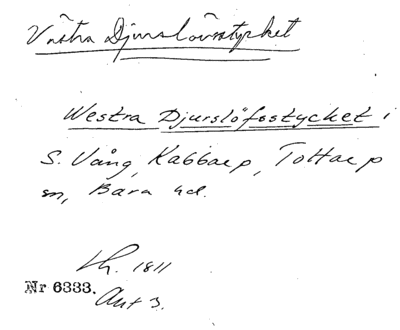 Västra Djurslövsstycket
Westra Djurslöfsstycket i
S. Vång, Kabbarp, Tottarp
sn, Bara hd.
Lh. 1811
Nr 6333.
Akt 3.